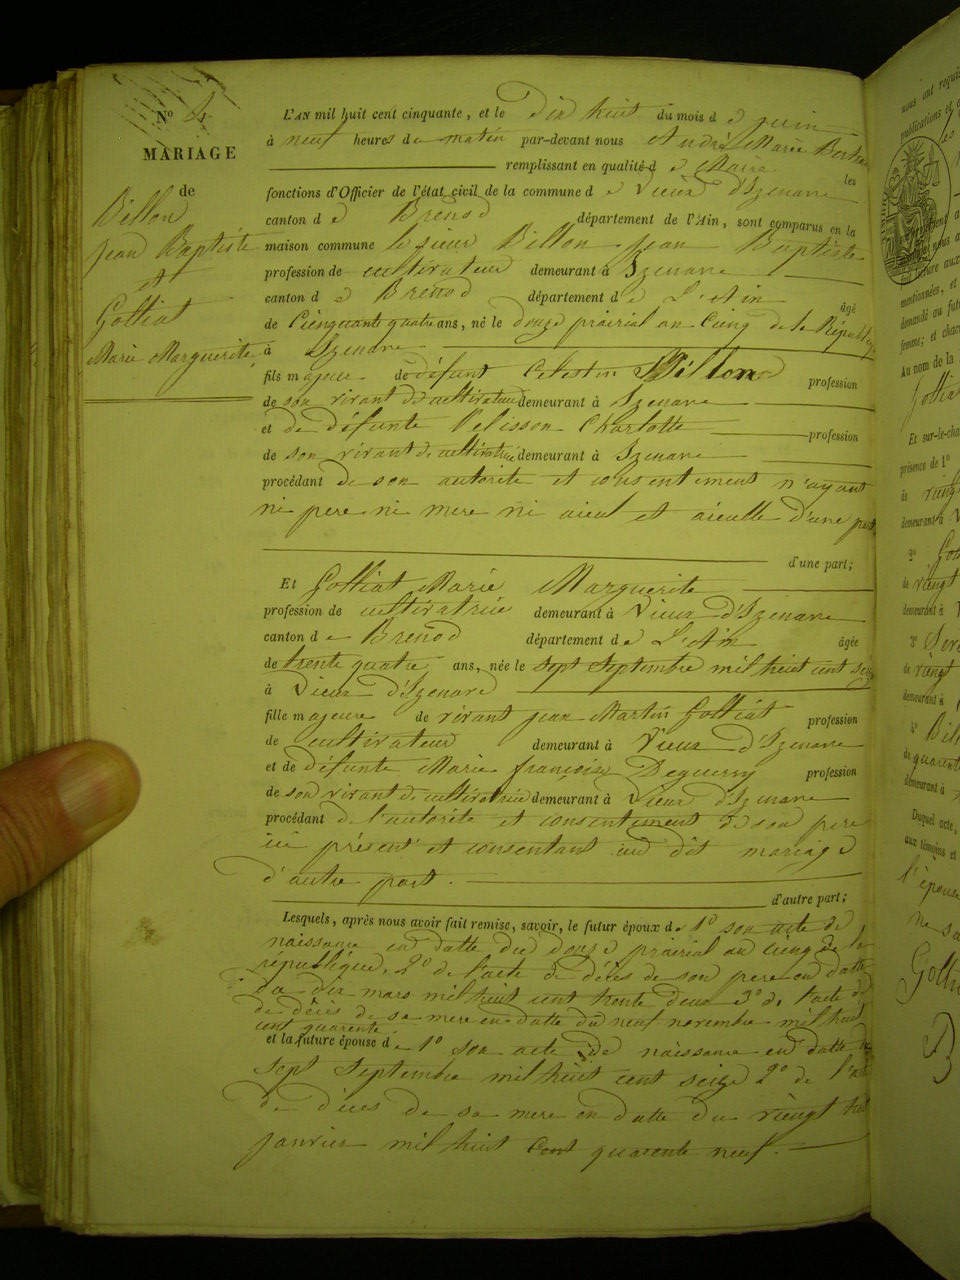 N° 4
MARIAGE
de
Billon
Jean Baptiste
et
Golliat
Marie Marguerite
L'AN mil huit cent cinquante, et le Dix huit du mois d e juin
à neuf heures du matin par-devant nous André Marie
remplissant en qualité d e Maire les
fonctions d'Officier de l'état civil de la commune d e Vieux d'Izenave
canton d e Brenod département de l'Ain, sont comparus en la
maison commune le sieur Billon Jean Baptiste
profession de cultivateur demeurant à Izenave
canton d e Brenod département d e L'Ain âgé
de Cienquante quatre ans, né le douze prairial an Cienq de la Républiq
à Izenave
fils majeur de défunt Celestin Billon profession
de son vivant de cultivateur demeurant à Izenave
et de défunte Pelisson Charlotte profession
de son vivant de cultivatrice demeurant à Izenave
procédant de son autorite et consentement n'ayant
ni pere ni mere ni aieul et aieulle d'une part
d'une part;
Et Golliat Marie Marguerite
profession de cultivatrice demeurant à Vieux d'Izenave
canton d e Brenod département d e L'Ain âgée
de trente quatre ans, née le sept Septembre mil huit cent seize
à Vieux d'Izenave
fille majeure de vivant jean Martin Golliat profession
de cultivateur demeurant à Vieux d'Izenave
et de défunte Marie francoise Deguerry profession
de son vivant de cultivatrice demeurant à Vieux d'Izenave
procédant de l'autorite et consentement de son pere
ici présent et consentant au dit mariage
d'autre part.
d'autre part;
Lesquels, après nous avoir fait remise, savoir, le futur époux d e 1° son acte de
naissance en datte du douze prairial an cienq de la
république, 2° de l'acte de décès de son pere en datte
du dix mars mil huit cent trente deux 3° de l'acte de
de décès de sa mere en datte du neuf novembre mil huit
cent quarente
et la future épouse d e 1° son acte de naissance en datte du
sept Septembre mil huit cent seize 2° de l'acte
de décès de sa mere en datte du viengt huit
janvier mil huit cent quarente neuf.
nous ont requis
publications et
mentionnées, et
demandé au futur
femme; et chacun
Au nom de la
Et sur-le-champ
présence de 1°
de viengt
demeurant à
2°
de viengt
demeurant à
3°
de viengt
demeurant à
4° Bill
de quarente
demeurant à
Duquel acte,
aux témoins et
l'épouse
ne sa